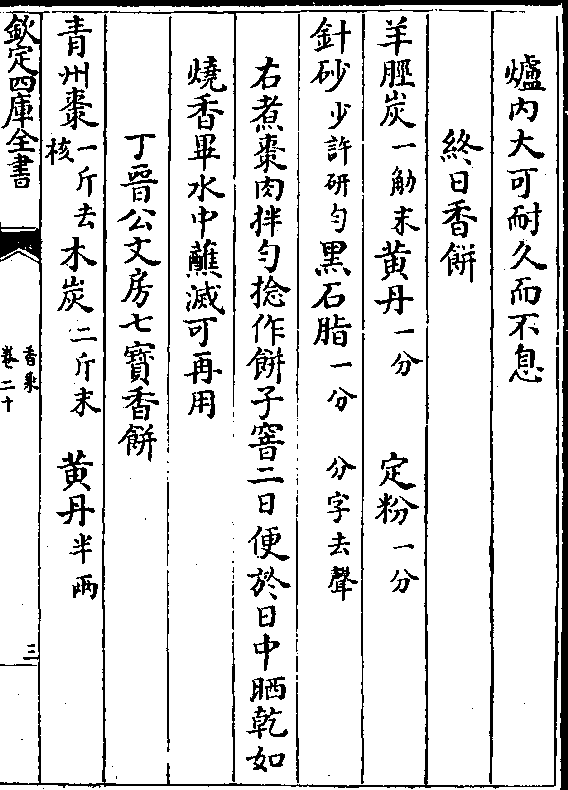 爐内大可耐久而不息
終日香餅
羊脛炭一觔末黄丹一分 定粉一分
針砂少許研勻黑石脂一分 分字去聲
右煮棗肉拌勻捻作餅子窨二日便於日中晒乾如
燒香畢水中蘸滅可再用
丁晉公文房七寶香餅
青州棗一斤去核木炭二斤末 黄丹半兩
欽定四庫全書
香乘
卷二十
三